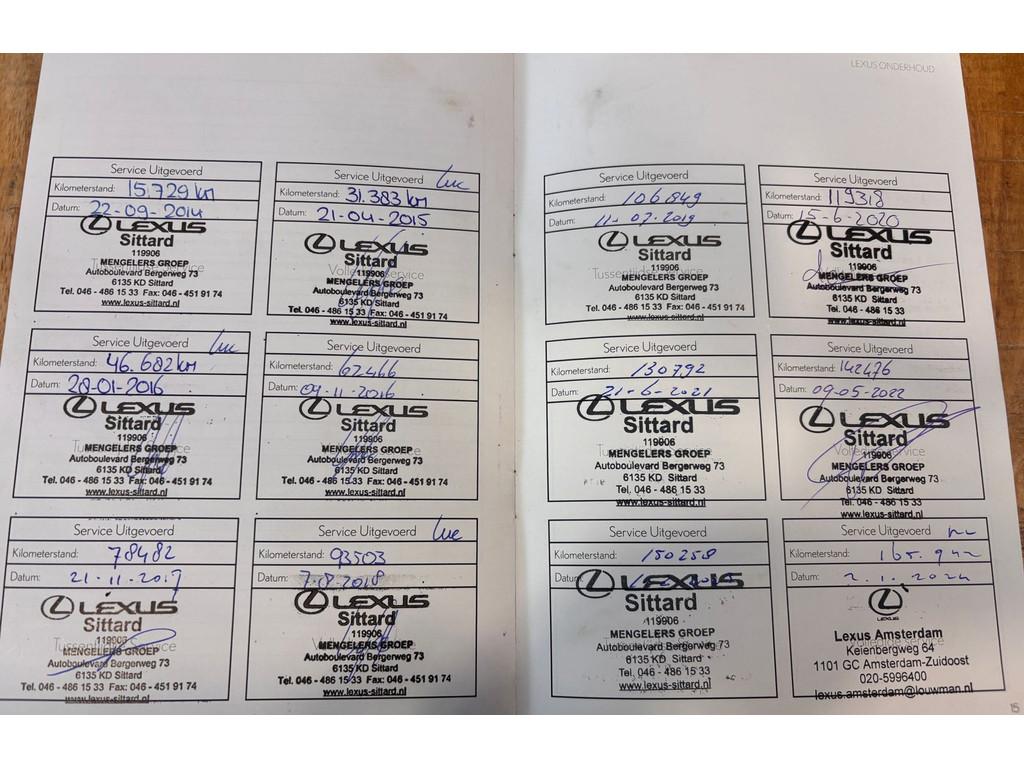 LEXUS ONDERHOUD
Service Uitgevoerd
Kilometerstand: 15.729 km
Datum: 22-09-2014
LEXUS
Sittard
119906
MENGELERS GROEP
Autoboulevard Bergerweg 73
6135 KD Sittard
Tel. 046 - 486 15 33 Fax: 046 - 451 91 74
www.lexus-sittard.nl
Service Uitgevoerd
Kilometerstand: 31.383 km
Datum: 21-04-2015
LEXUS
Sittard
119906
MENGELERS GROEP
Autoboulevard Bergerweg 73
6135 KD Sittard
Tel. 046 - 486 15 33 Fax: 046 - 451 91 74
www.lexus-sittard.nl
Service Uitgevoerd
Kilometerstand: 46.682 km
Datum: 28-01-2016
LEXUS
Sittard
119906
MENGELERS GROEP
Autoboulevard Bergerweg 73
6135 KD Sittard
Tel. 046 - 486 15 33 Fax: 046 - 451 91 74
www.lexus-sittard.nl
Service Uitgevoerd
Kilometerstand: 62.466
Datum: 09-11-2016
LEXUS
Sittard
119906
MENGELERS GROEP
Autoboulevard Bergerweg 73
6135 KD Sittard
Tel. 046 - 486 15 33 Fax: 046 - 451 91 74
www.lexus-sittard.nl
Service Uitgevoerd
Kilometerstand: 78482
Datum: 21-11-2017
LEXUS
Sittard
119906
MENGELERS GROEP
Autoboulevard Bergerweg 73
6135 KD Sittard
Tel. 046 - 486 15 33 Fax: 046 - 451 91 74
www.lexus-sittard.nl
Service Uitgevoerd
Kilometerstand: 93503
Datum: 7-8-2018
LEXUS
Sittard
119906
MENGELERS GROEP
Autoboulevard Bergerweg 73
6135 KD Sittard
Tel. 046 - 486 15 33 Fax: 046 - 451 91 74
www.lexus-sittard.nl
Service Uitgevoerd
Kilometerstand: 106849
Datum: 11-07-2019
LEXUS
Sittard
119906
Tussentijdse service
MENGELERS GROEP
Autoboulevard Bergerweg 73
6135 KD Sittard
Tel. 046 - 486 15 33 Fax: 046 - 451 91 74
www.lexus-sittard.nl
Service Uitgevoerd
Kilometerstand: 119318
Datum: 15-6-2020
LEXUS
Sittard
119906
MENGELERS GROEP
Autoboulevard Bergerweg 73
6135 KD Sittard
Tel. 046 - 486 15 33
www.lexus-sittard.nl
Service Uitgevoerd
Kilometerstand: 130792
Datum: 21-6-2021
LEXUS
Sittard
119906
MENGELERS GROEP
Autoboulevard Bergerweg 73
6135 KD Sittard
Tel. 046 - 486 15 33
www.lexus-sittard.nl
Service Uitgevoerd
Kilometerstand: 142476
Datum: 09-05-2022
LEXUS
Sittard
119906
MENGELERS GROEP
Autoboulevard Bergerweg 73
6135 KD Sittard
Tel. 046 - 486 15 33
www.lexus-sittard.nl
Service Uitgevoerd
Kilometerstand: 150258
Datum:
LEXUS
Sittard
119906
MENGELERS GROEP
Autoboulevard Bergerweg 73
6135 KD Sittard
Tel. 046 - 486 15 33
www.lexus-sittard.nl
Service Uitgevoerd
Kilometerstand: 165.942
Datum: 2.1.2024
LEXUS
Lexus Amsterdam
Keienbergweg 64
1101 GC Amsterdam-Zuidoost
020-5996400
lexus.amsterdam@louwman.nl
15